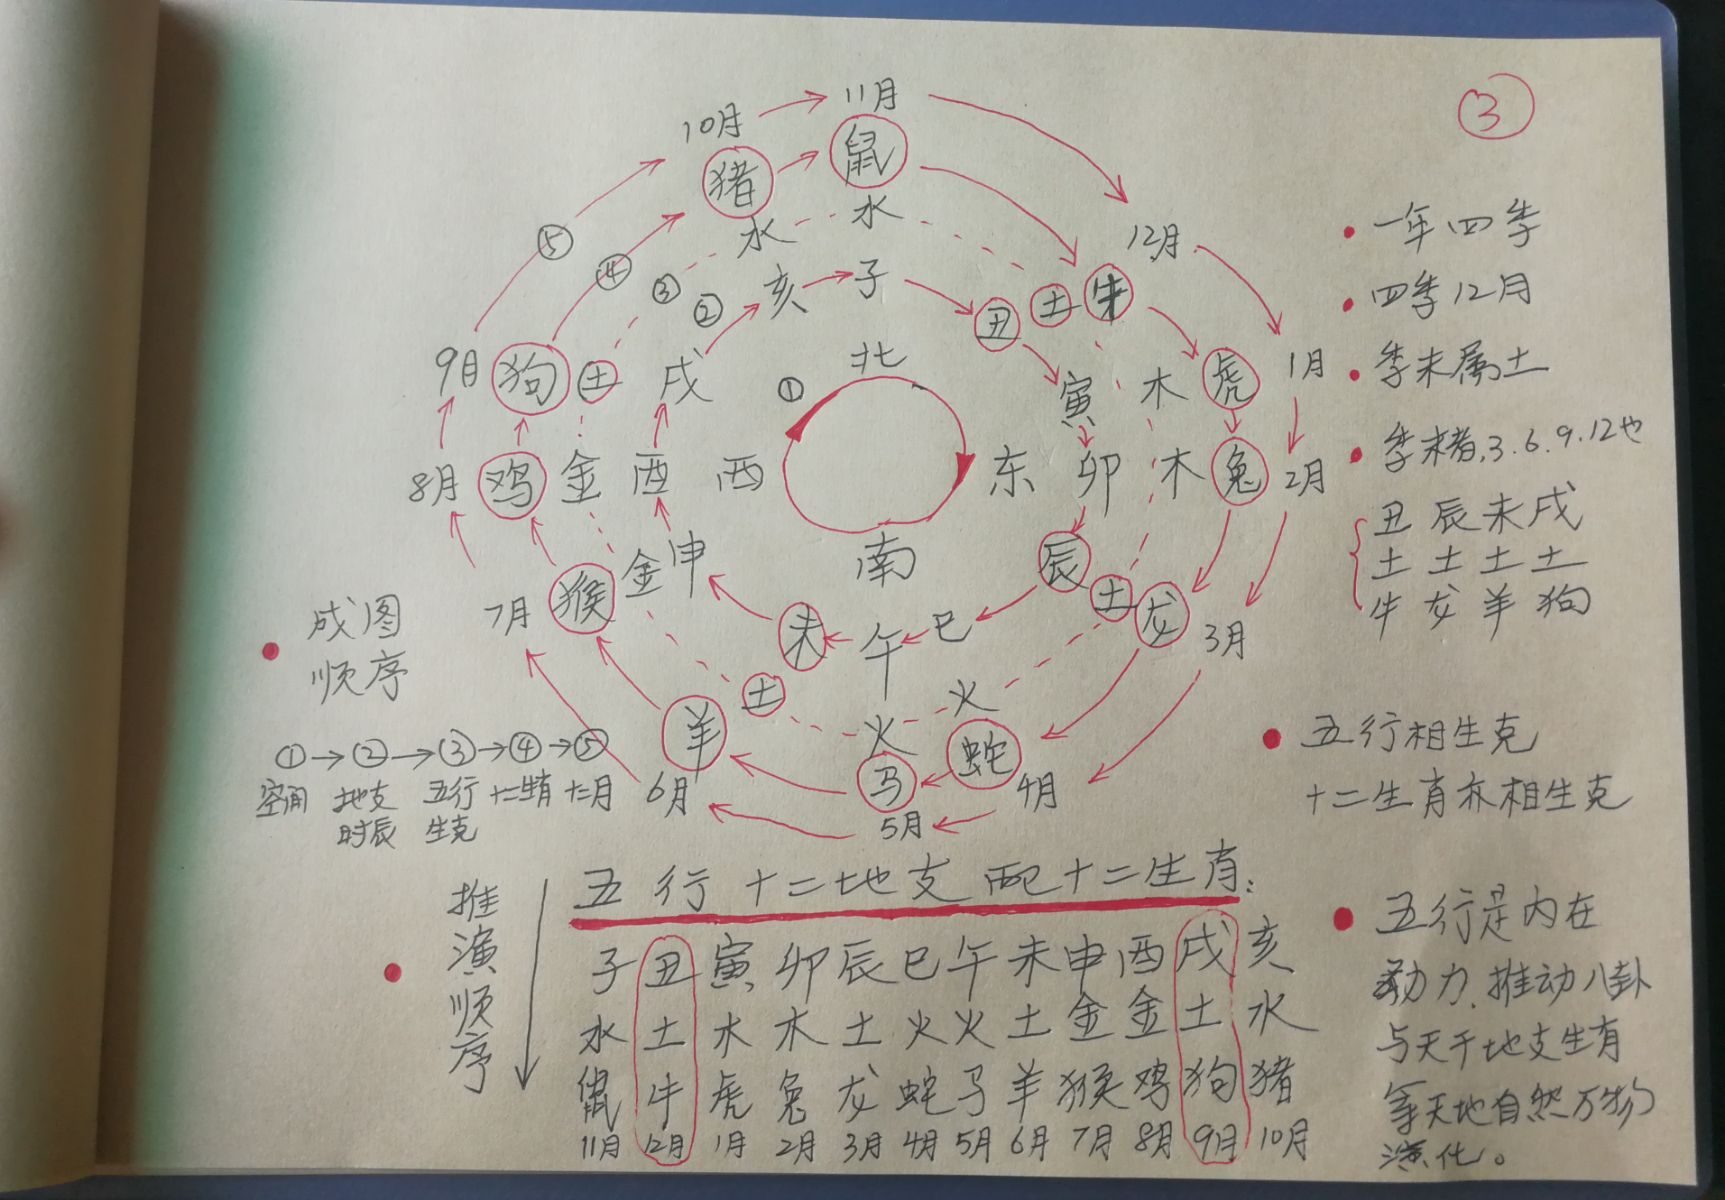 ③
10月
11月
12月
1月
2月
3月
4月
5月
6月
7月
8月
9月
猪
鼠
牛
虎
兔
龙
蛇
马
羊
猴
鸡
狗
水
水
土
木
木
土
火
火
土
金
金
土
亥
子
丑
寅
卯
辰
巳
午
未
申
酉
戌
北
东
南
西
①
②
③
④
⑤
一年四季
四季12月
季末属土
季末者,3.6.9.12也
丑 辰 未 戌
土 土 土 土
牛 龙 羊 狗
五行相生克
十二生肖亦相生克
五行是内在
动力,推动八卦
与天干地支生肖
等天地自然万物
演化。
成图
顺序
①→②→③→④→⑤
空间 地支 五行 十二生肖 十二月
时辰 生克
推演顺序
五行十二地支配十二生肖:
子 丑 寅 卯 辰 巳 午 未 申 酉 戌 亥
水 土 木 木 土 火 火 土 金 金 土 水
鼠 牛 虎 兔 龙 蛇 马 羊 猴 鸡 狗 猪
11月 12月 1月 2月 3月 4月 5月 6月 7月 8月 9月 10月